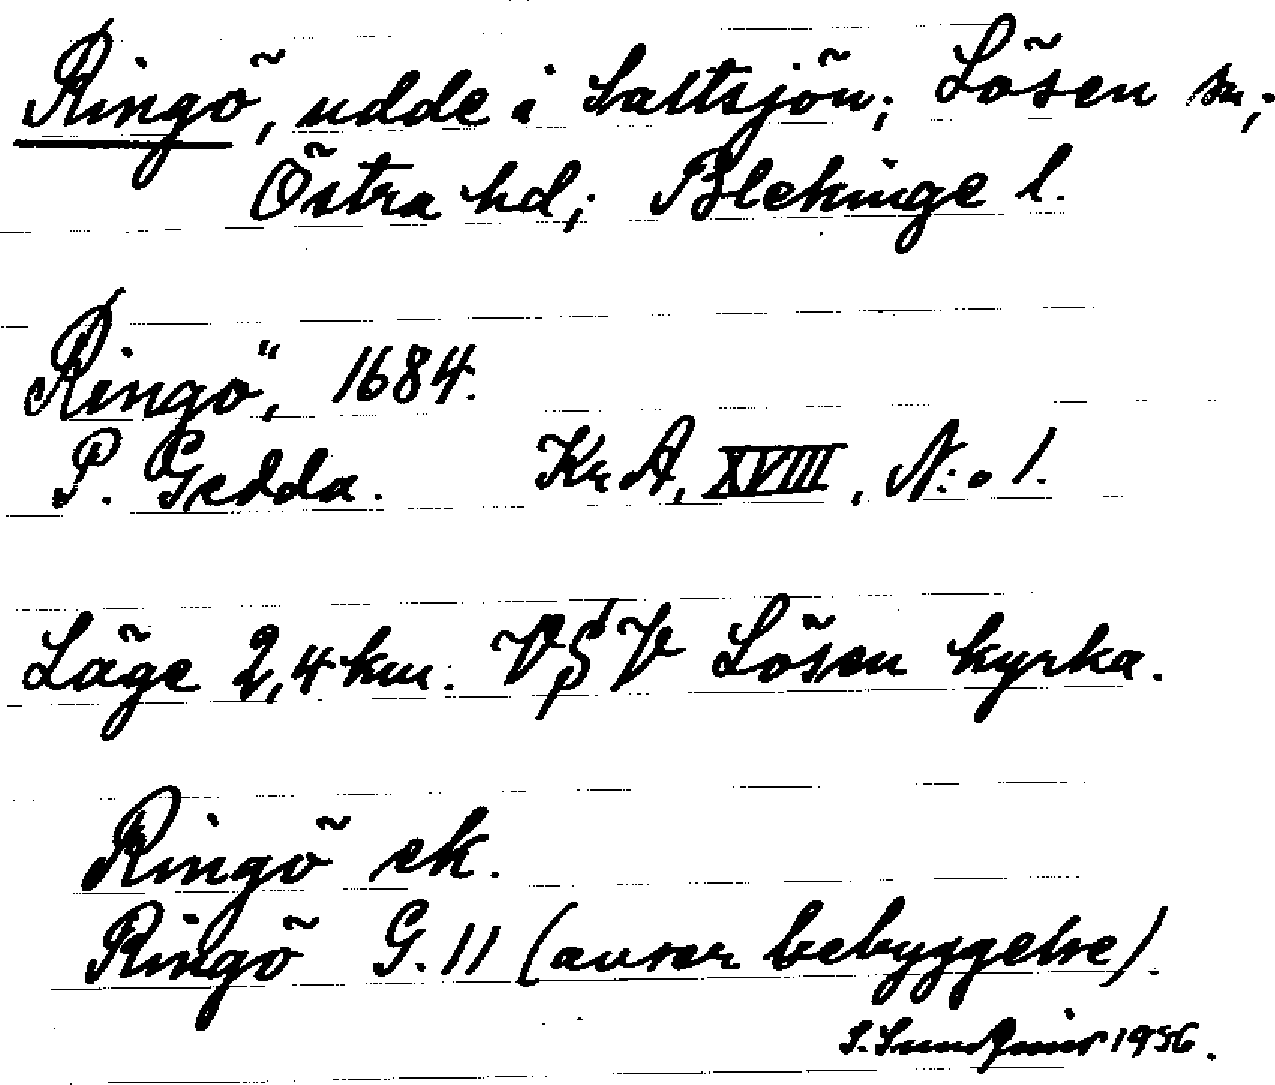 Ringö, udde i Saltsjön; Lösen sn;
Östra hd; Blekinge l.
Ringö", 1684.
P. Gedda. Kr A, XVIII, N:o 1.
Läge 2,4 km. VSV Lösen kyrka.
Ringö ek.
Ringö G. 11 (avser bebyggelse).
1956.